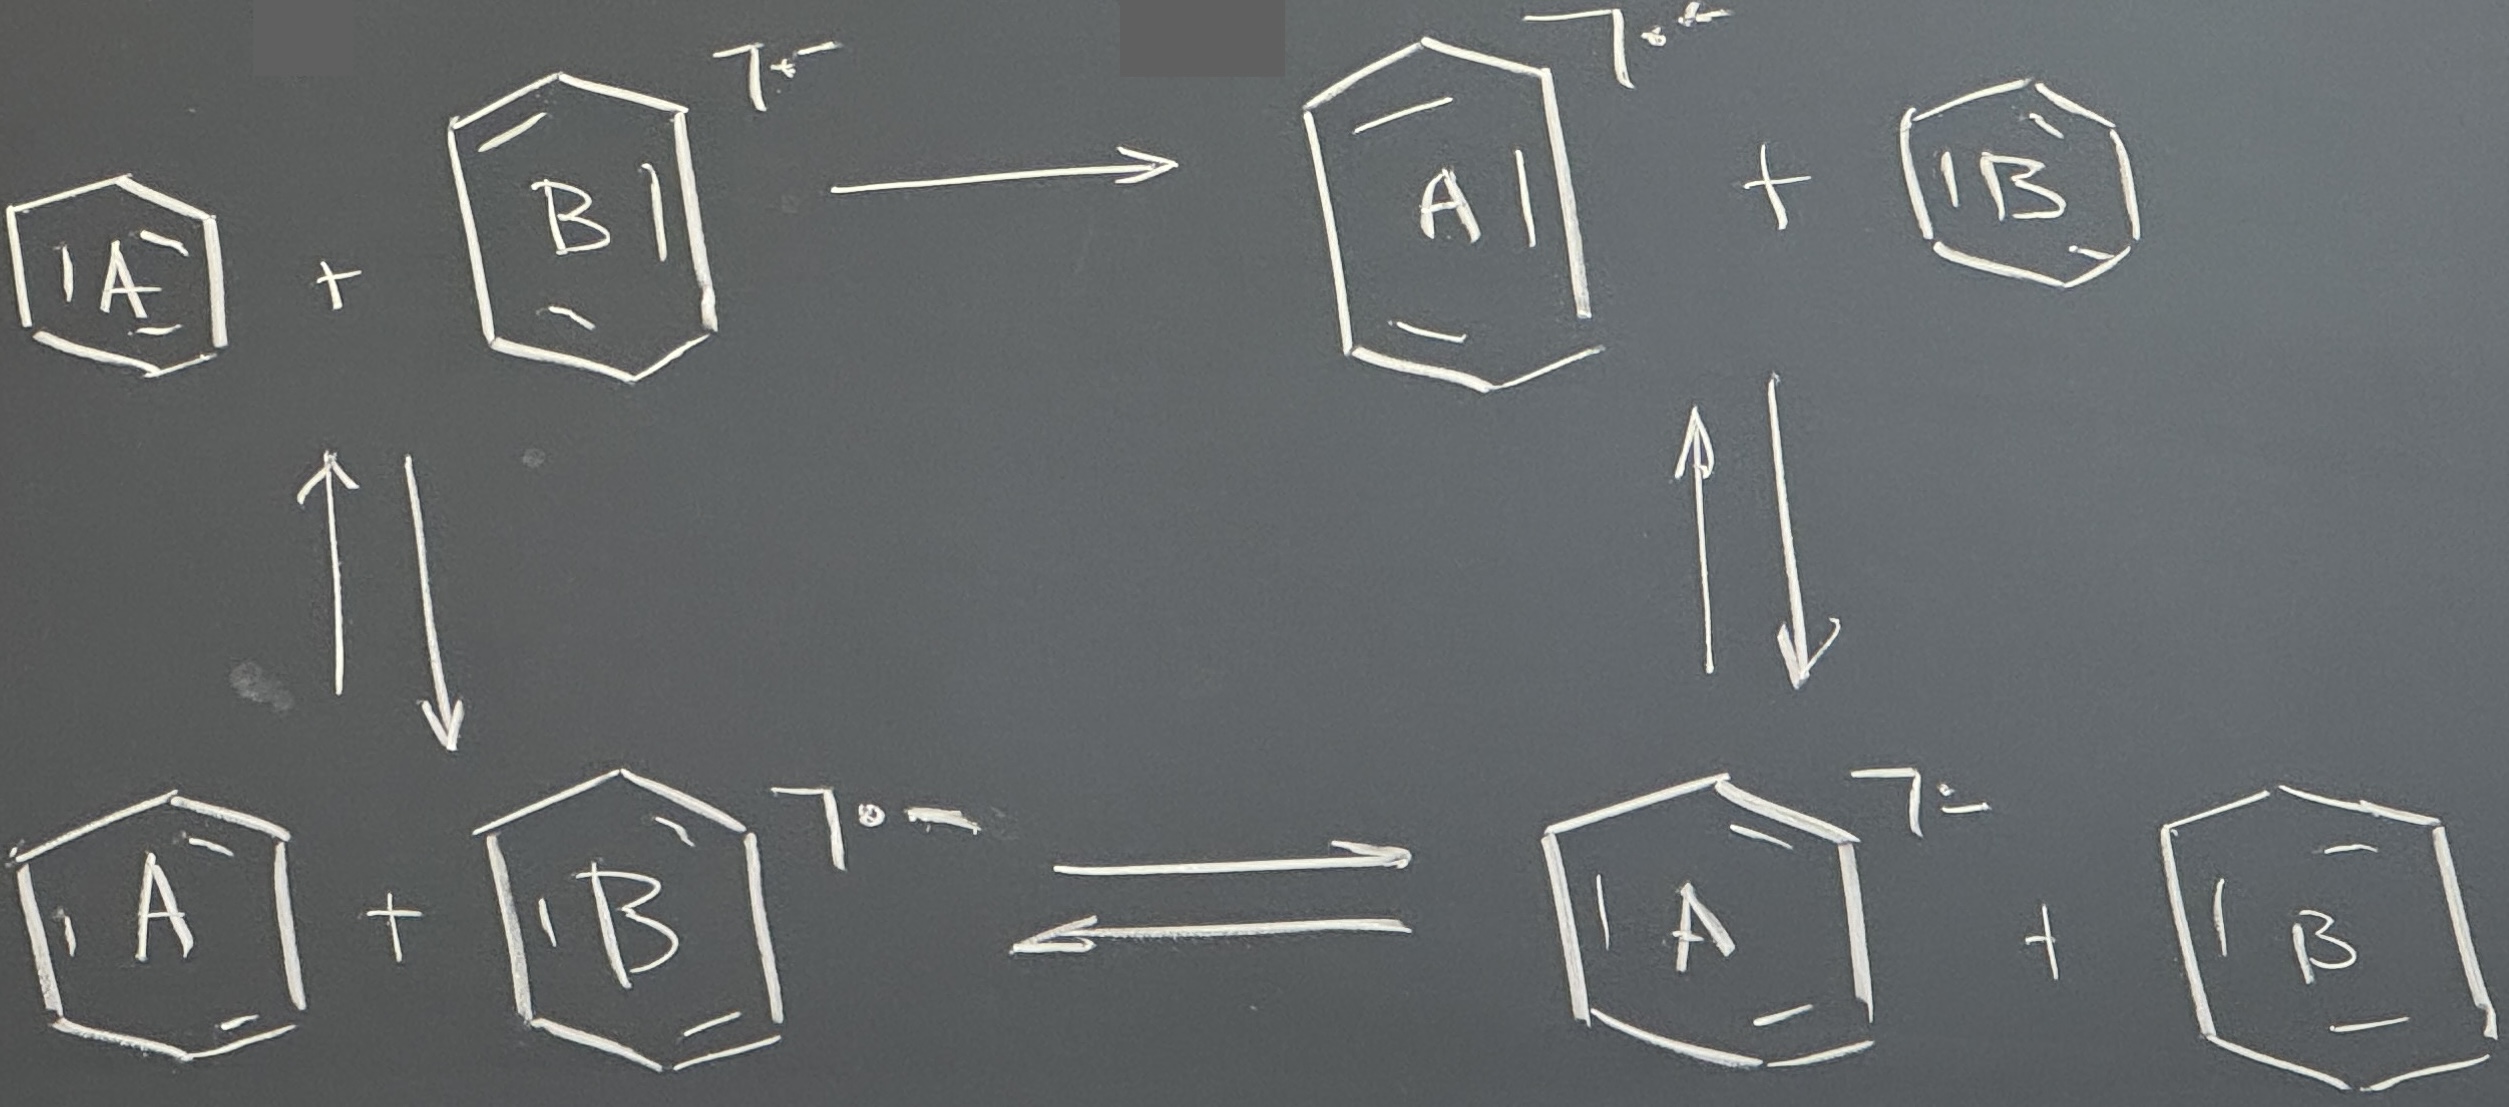 A + B ⁻ → A ⁻ + B
A + B ⁻ ⇌ A ⁻ + B